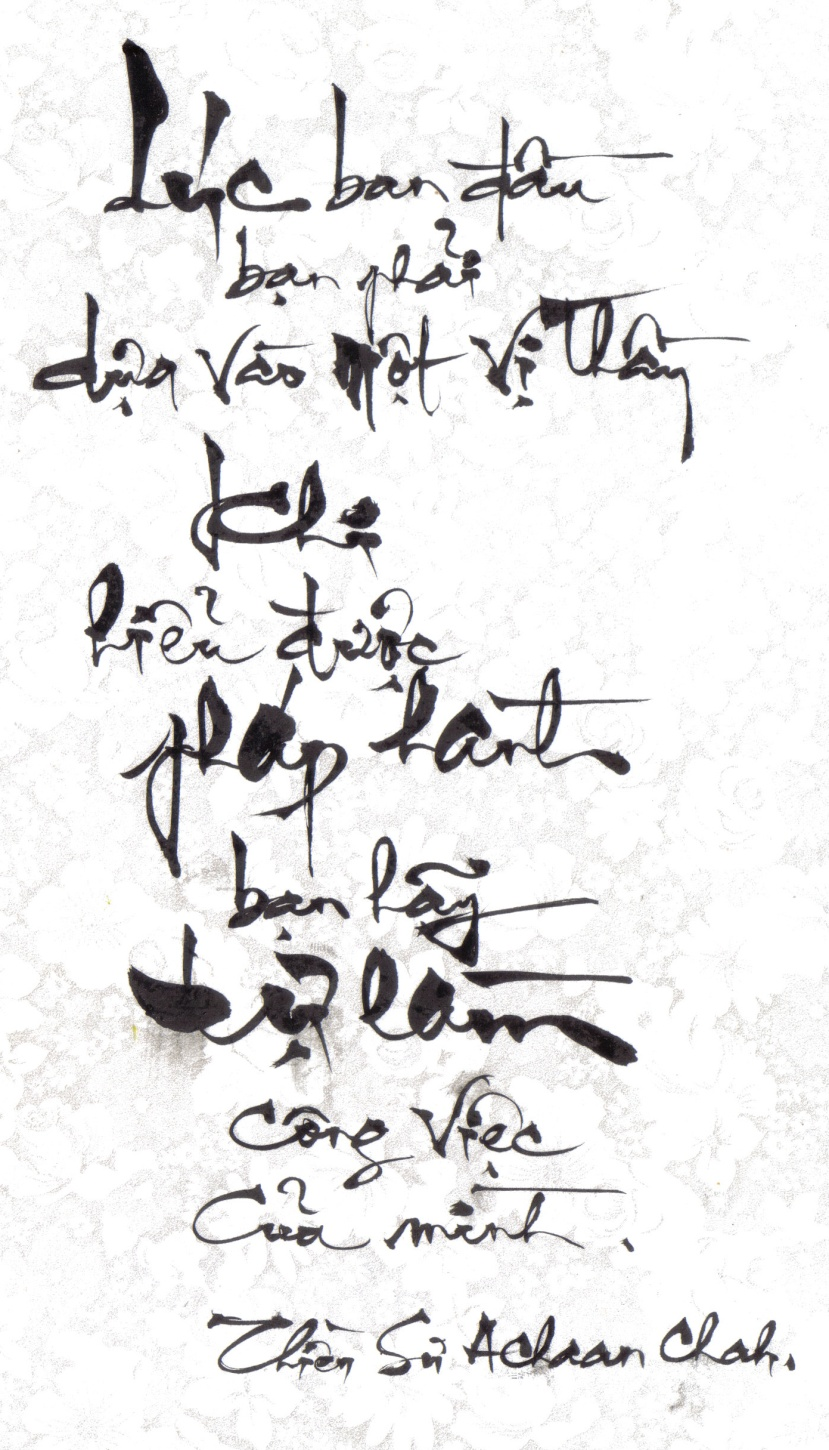 Lúc ban đầu
bạn phải
dựa vào một vị Thầy
Khi
hiểu được
pháp hành
bạn hãy
tự làm
công việc
của mình.
Thiền Sư Achaan Chah.